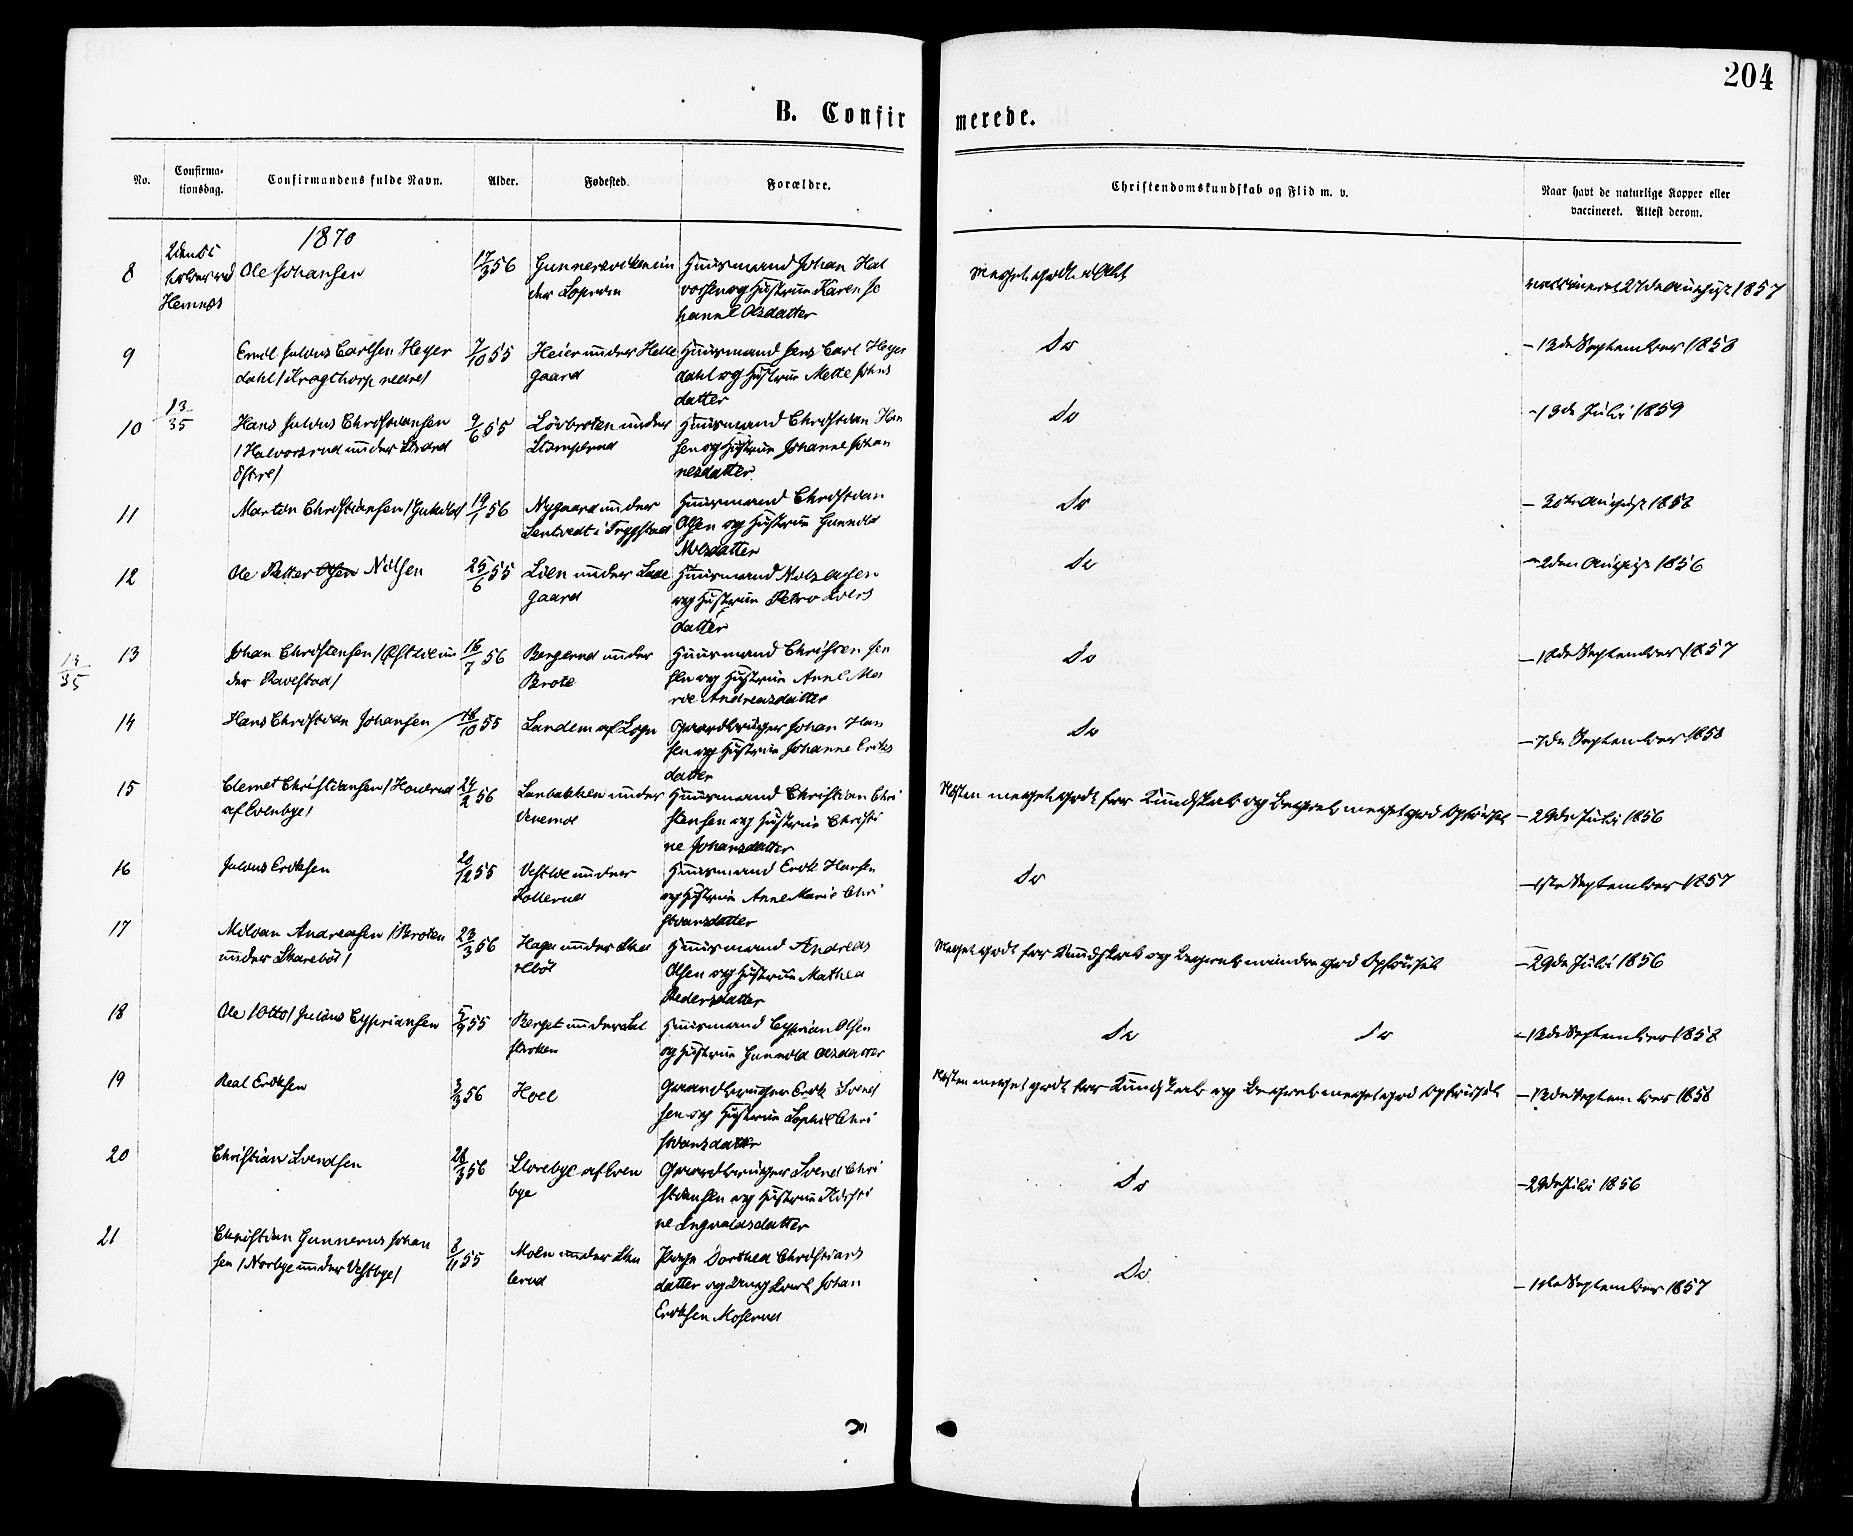 204
B. Confirmerede.
No.
Confirma-
tionsdag.
Confirmandens fulde Navn.
Alder.
Fødested.
Forældre.
Christendomskundskab og Flid m. v.
Naar havt de naturlige Kopper eller
vaccineret. Attest derom.
1870
8
2den Oc
tober ved
Hemnæs
Ole Johansen
17/3 56
Huusmand Johan Hal
vorsen og Hustrue Karen Jo
hanne Olsdatter
Meget godt i Alt
vaccineret 27de August 1857
9
Emil Julius Carlsen Heyer
dahl /Kragtorp nedre/
7/10 55
Heier under Helle
gaard
Huusmand Jens Carl Heyer
dahl og Hustrue Mette Johns
datter
Do
— 12de September 1858
13/35
10
Hans Julius Christiansen
/Halvorsrud under
Østre/
9/6 55
Lövbroten under
Huusmand Christian Han
sen og Hustrue Johanne Johan
nesdatter
Do
— 13de Juli 1859
11
Martin Christiansen
19/1 56
Nygaard under
i Trygstad
Huusmand Christian
Olsen og Hustrue Gunnild
Nilsdatter
Do
— August 1858
12
Ole Petter Olsen Nilsen
25/6 55
Lien under
gaard
Huusmand Nils Olsen
og Hustrue
datter
Do
— 2den August 1856
13/35
13
Johan Christensen /Østlie un
der Ravestad/
16/7 56
Bergerud under
Brote
Huusmand Christen Jen
sen og Hustrue Anne Ma
rie Andreasdatter
Do
— September 1857
14
Hans Christian Johansen
18/10 55
Sandem af Sogn
Gaardbruger Johan Han
sen og Hustrue Johanne Eriks
datter
Do
— 7de September 1858
15
Clemet Christiansen /Houerud
af Evenbye/
24/2 56
Lanbakken under
Venemoe
Huusmand Christian Chri
stensen og Hustrue Christi
ne Johansdatter
Næsten meget godt for Kundskab og Begreb meget god Opførsel
— 29de Juli 1856
16
Julius Eriksen
20/12 55
Vestlie under
Huusmand Erik Hansen
og Hustrue Anne Marie Chri
stiansdatter
Do
— 1ste September 1857
17
Milian Andreasen /Broten
under Skarebøl/
23/3 56
Haga under Ska
rebøl
Huusmand Andreas
Olsen og Hustrue Mathea
Pedersdatter
Meget godt for Kundskab og Begreb mindre god Opførsel
— 29de Juli 1856
18
Ole /Otto/ Julius Cypriansen
5/9 55
Berget under
Huusmand Cyprian Olsen
og Hustrue Gunnild Olsdatter
Do Do
— 12de September 1858
19
Real Eriksen
3/3 56
Hoel
Gaardbruger Erik Svend
sen og Hustrue Sophie Chri
stiansdatter
Næsten meget godt for Kundskab og Begreb meget god Opførsel
— 12de September 1858
20
Christian Svendsen
28/3 56
Storebye af Even
bye
Gaardbruger Svend Chri
stiansen og Hustrue Kirsti
ne Ingvaldsdatter
Do
— 29de Juli 1856
21
Christian Gunnerus Johan
sen /Norbye under Vestbye/
8/11 55
Moen under
Pige Dorthea Christians
datter og Ungkarl Johan
Eriksen Moserud
Do
— September 1857